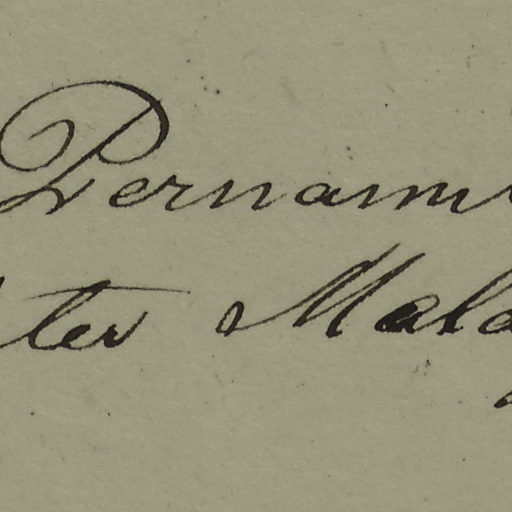 Pernam
ter Mala